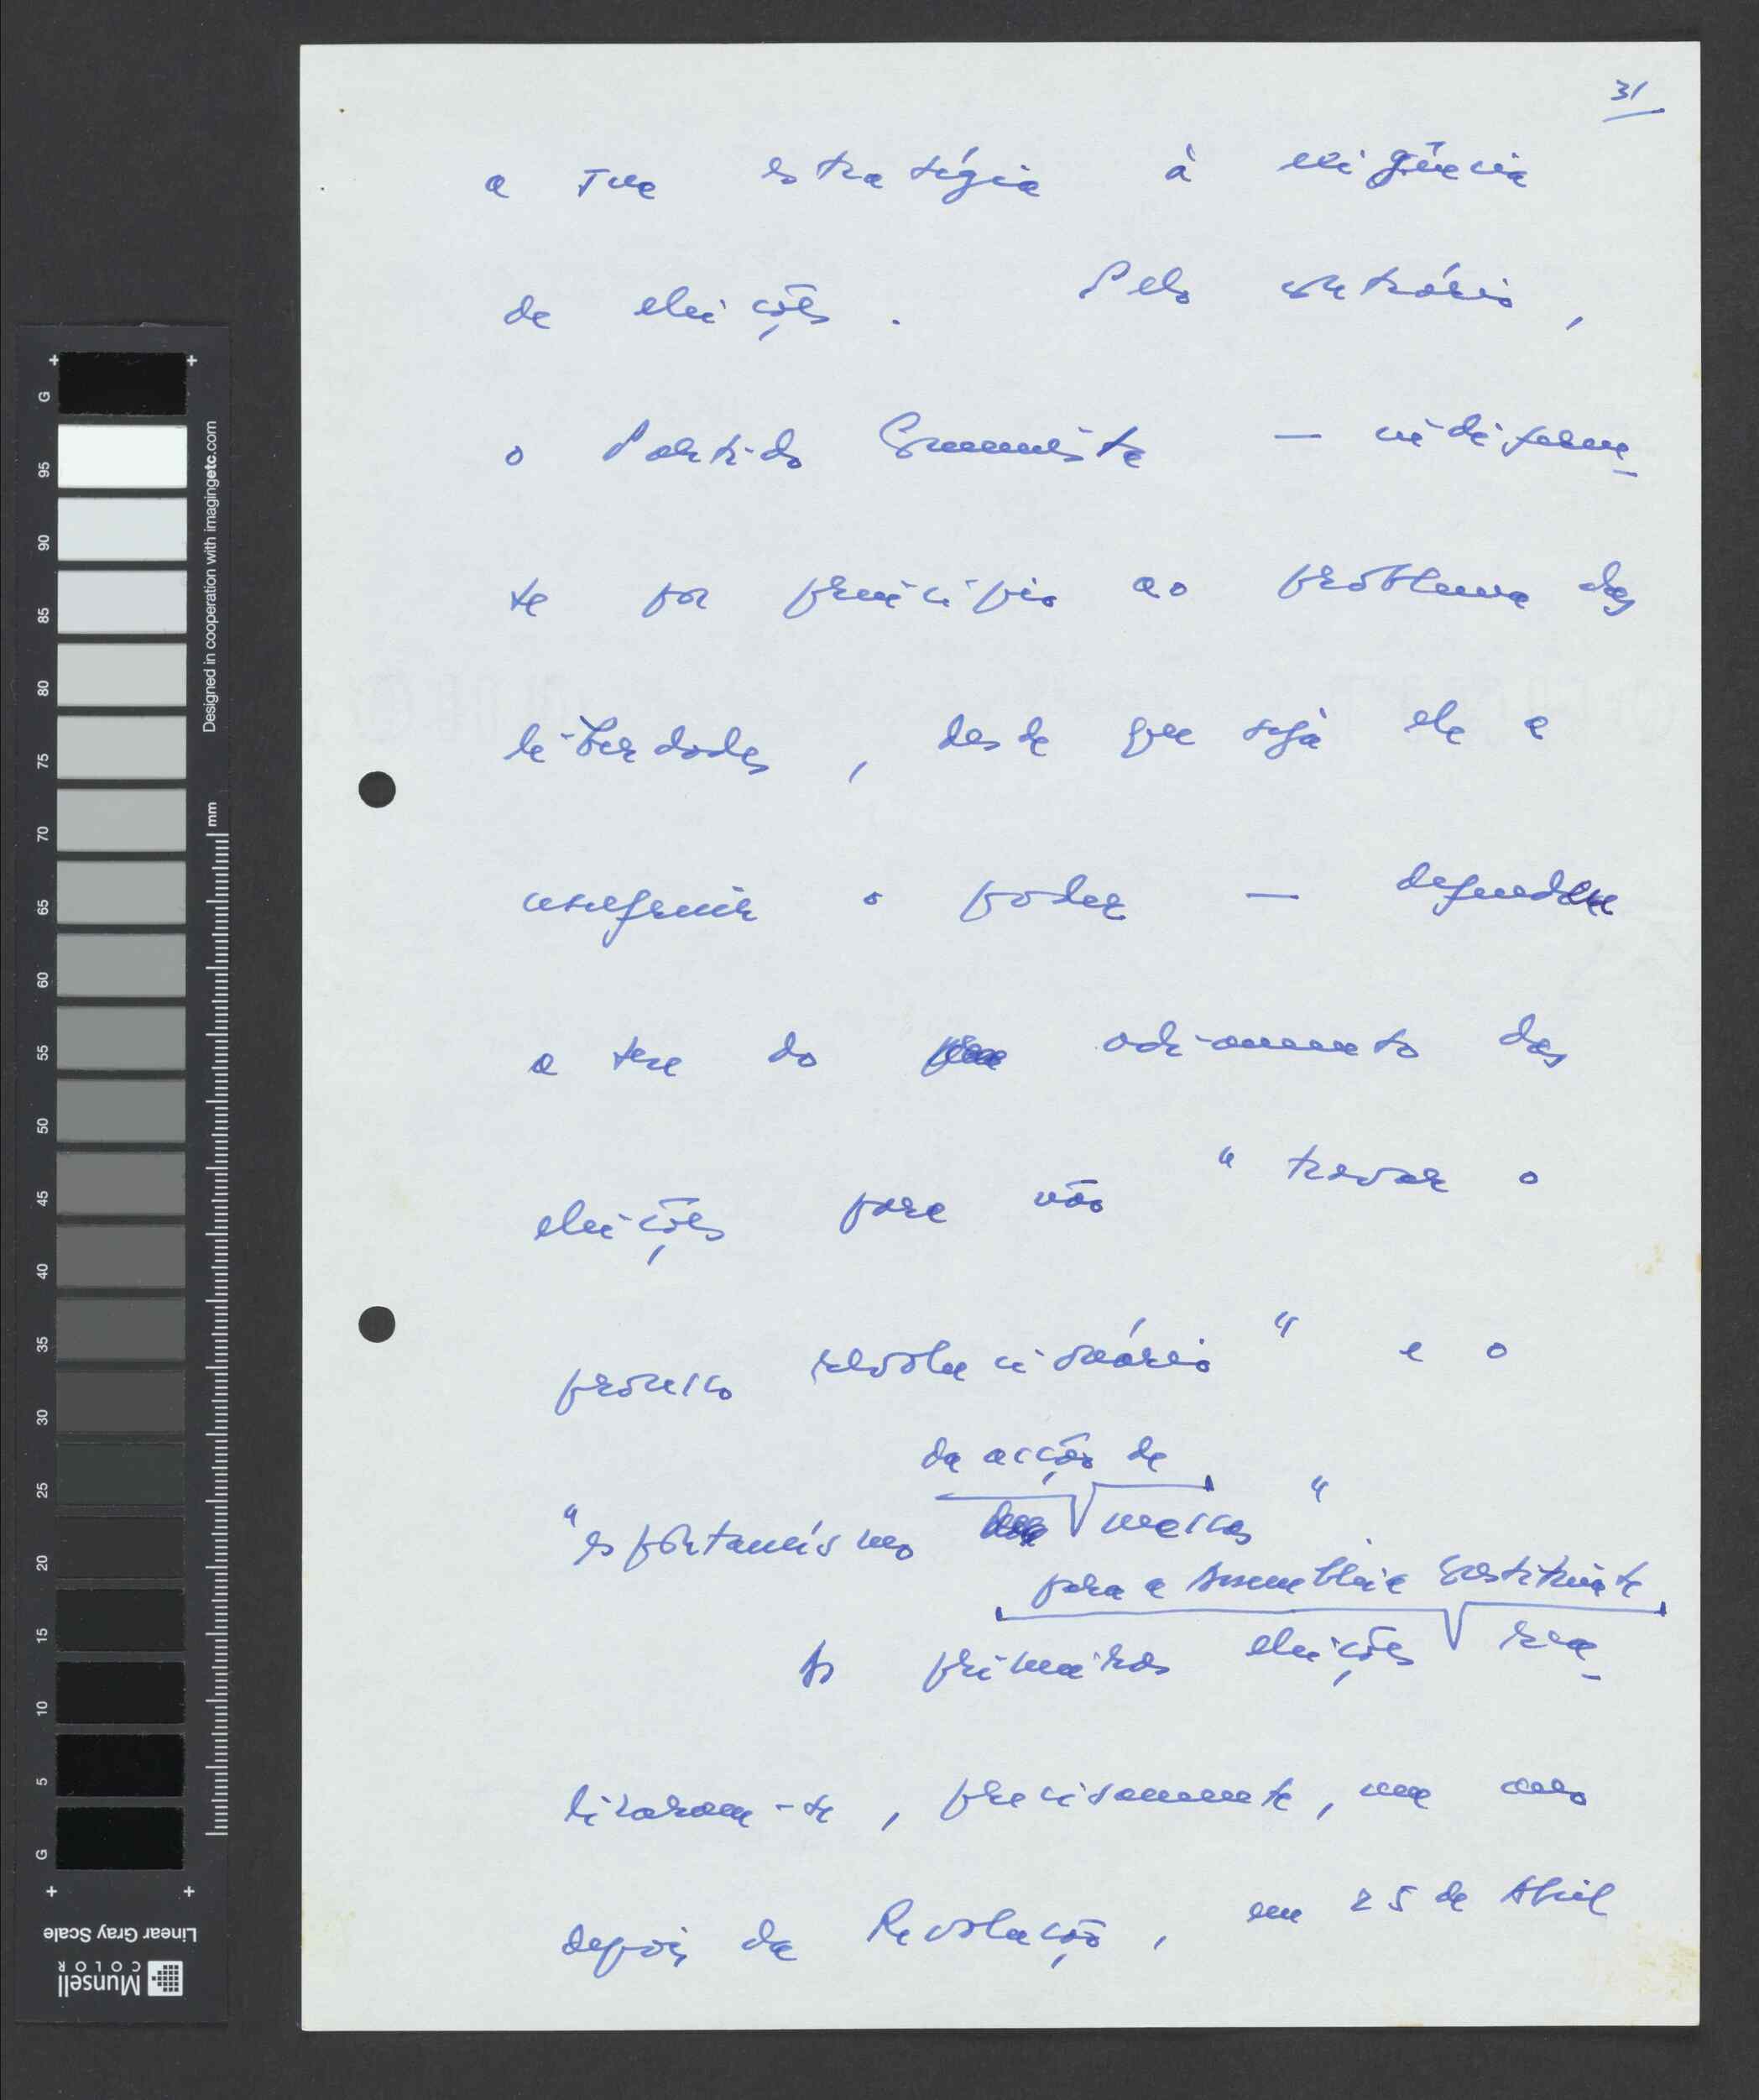 31
a sua estratégia à exigência
de eleições. Pelo contrário,
o Partido Comunista — indiferen-
te por princípio ao problema das
liberdades, desde que seja ele a
conseguir o poder — defendeu
a tese do adiamento das
eleições para não "travar o
processo revolucionário" e o
da acção de
"espontaneísmo massas".
para a Assembleia Constituinte
As primeiras eleições rea-
lizaram-se, precisamente, um ano
depois da Revolução, em 25 de Abril
G
95
90
85
80
75
70
65
60
55
50
45
40
35
30
25
20
15
10
5
G
Designed in cooperation with imagingetc.com
mm
Linear Gray Scale
Munsell
COLOR